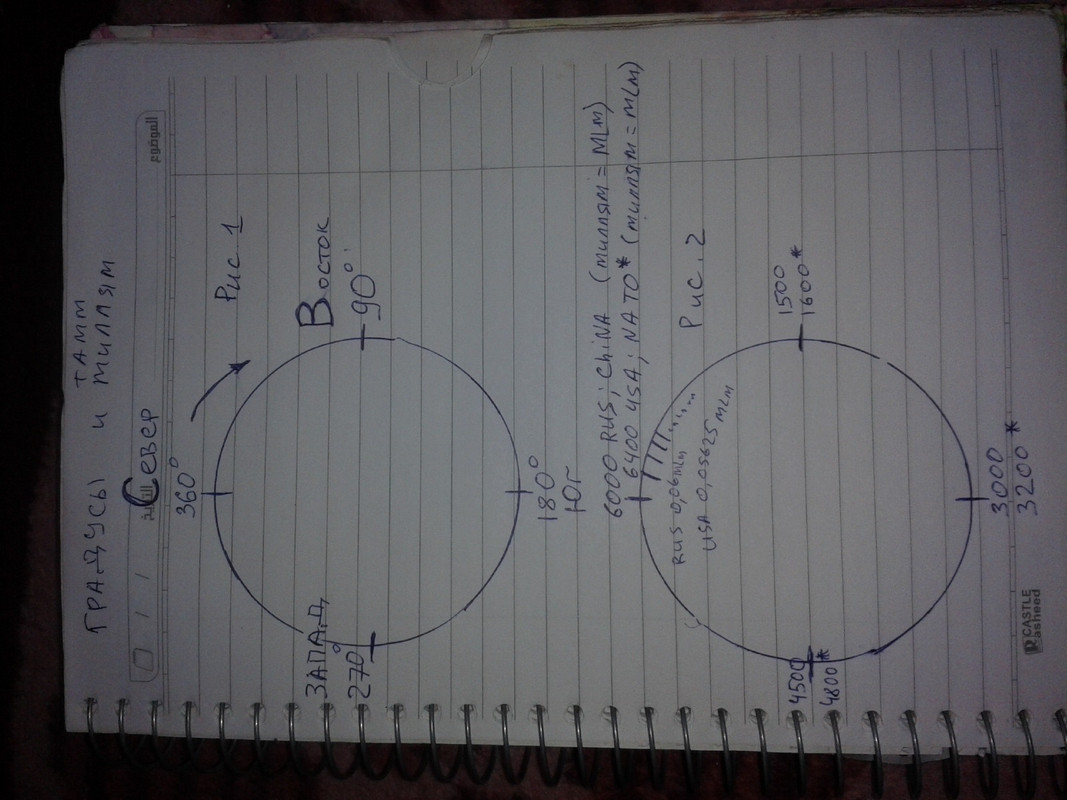 ТАММ
ГРАДУСЫ И МИЛЛЯМ
الموضوع
/ /
Север
360°
Рис 1
ЗАПАД
270°
Восток
90°
180°
Юг
6000 RUS; ChiNA (миллям = MLM)
6400 USA; NATO* (миллям = MLM)
RUS 0,06 MLM
USA 0,05625 MLM
Рис. 2
4500
4800*
1500
1600*
3000
3200*
CASTLE
Rasheed